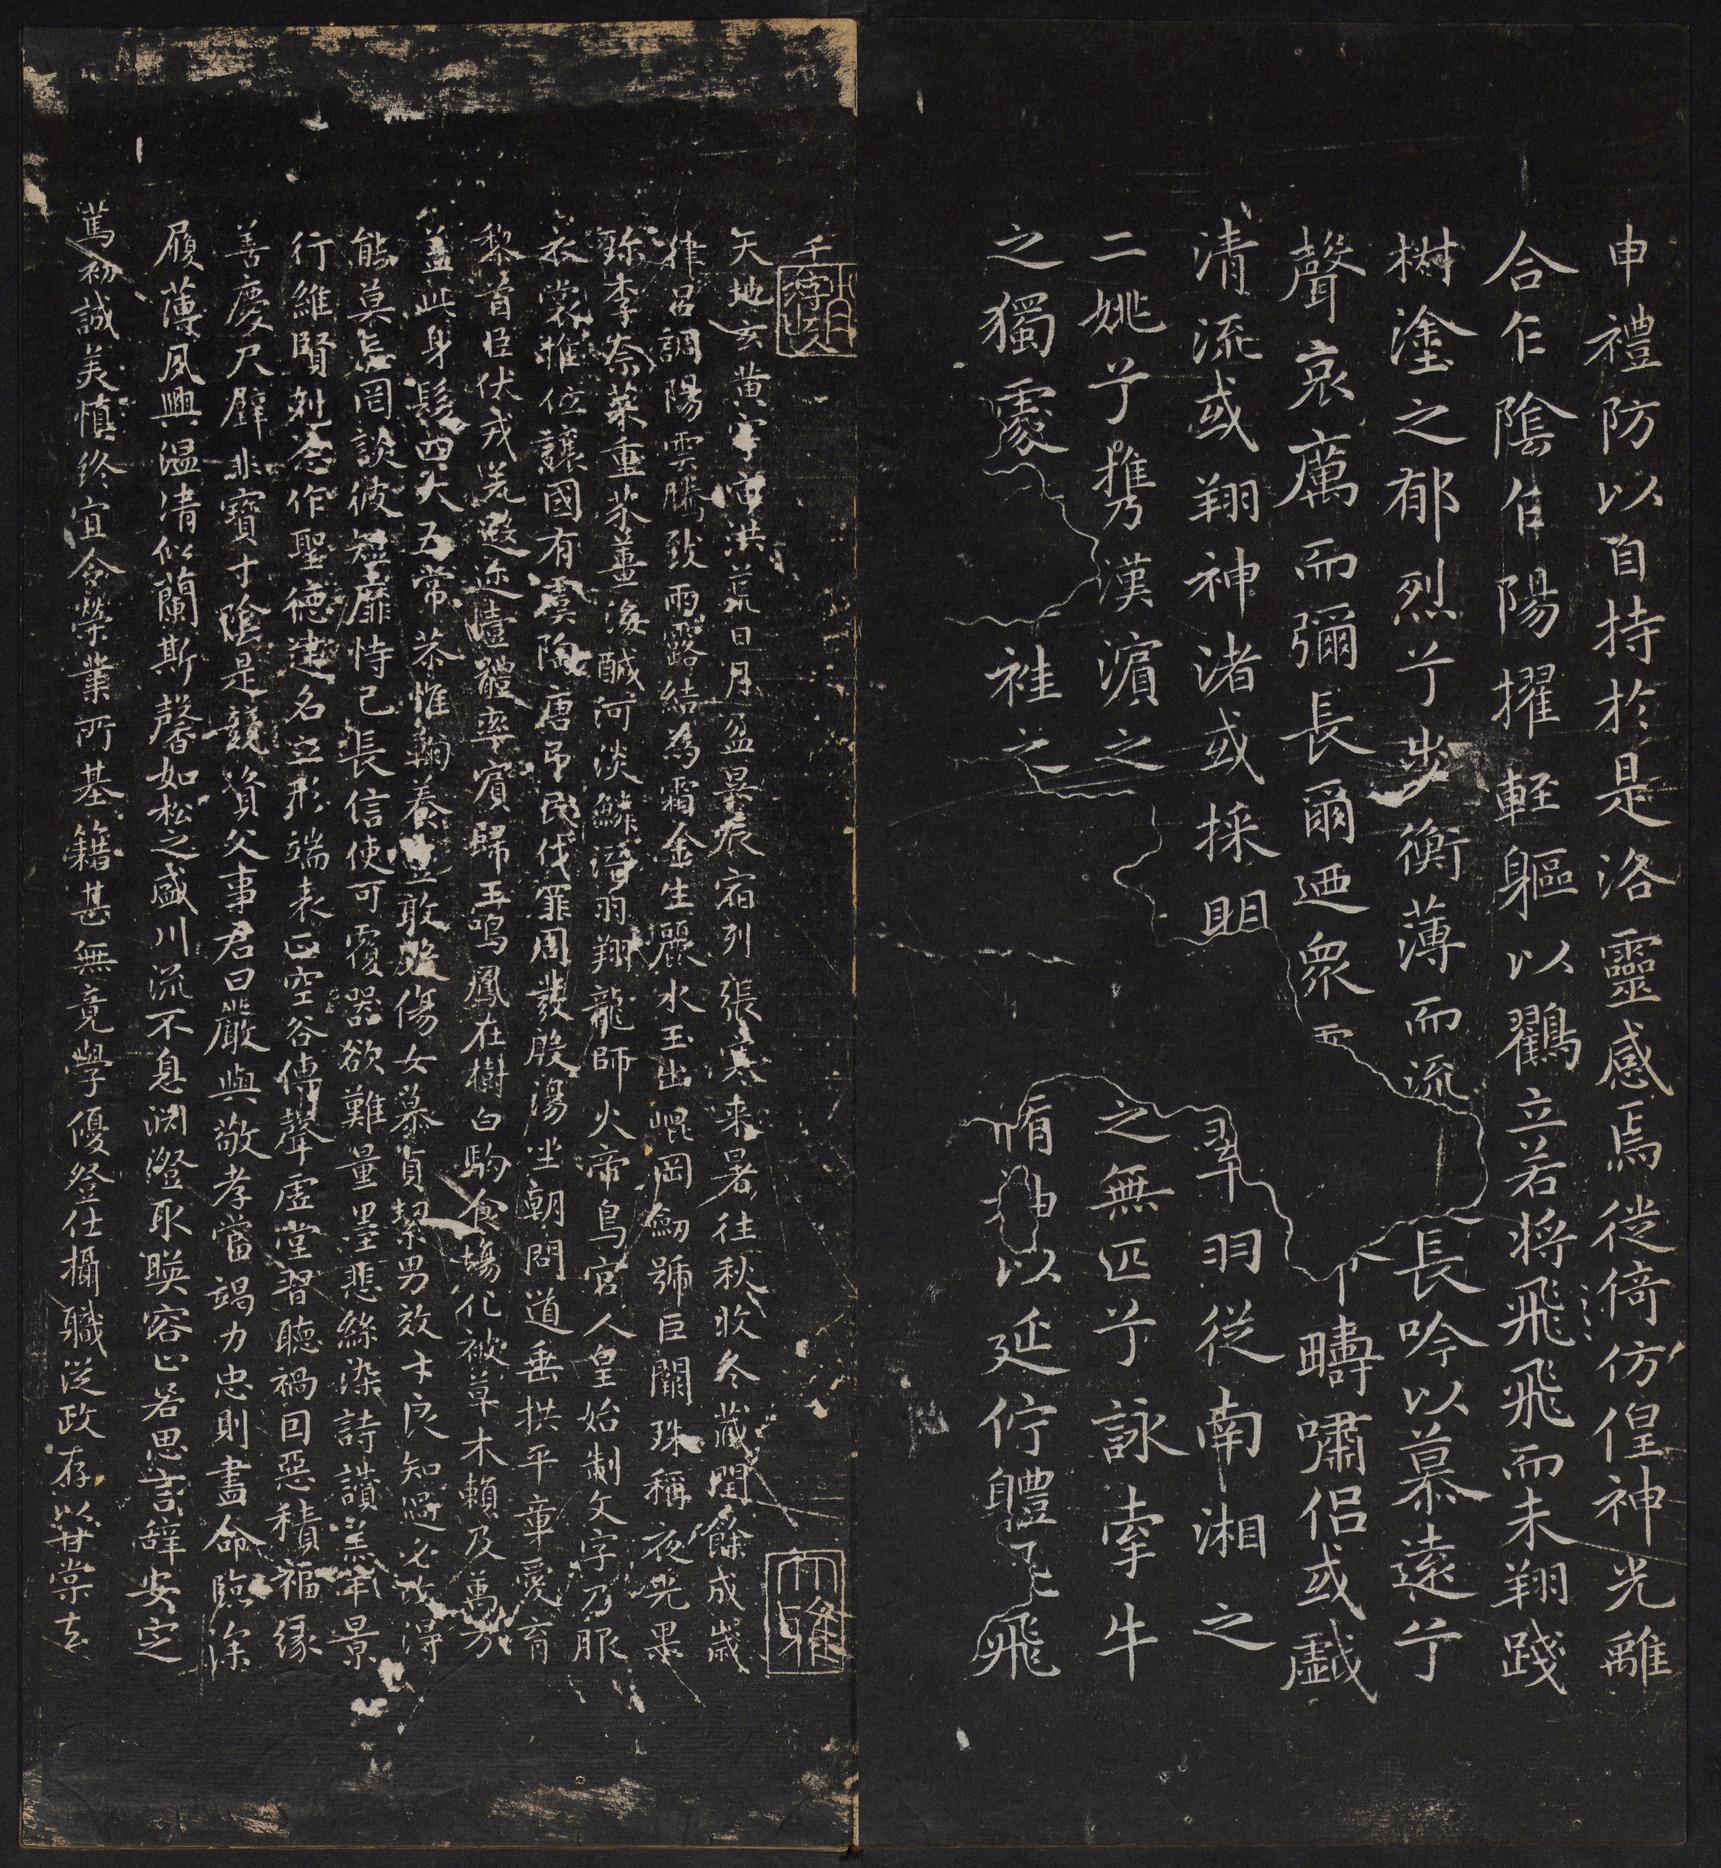 申禮防以自持於是洛靈感焉徙倚仿偟神光離
合乍陰乍陽擢輕軀以鸖立若將飛飛而未翔踐
樹塗之郁烈兮步衡薄而流長吟以慕遠兮
聲哀厲而彌長爾迺衆命疇嘯侶或戲
清流或翔神渚或採明翠羽從南湘之
二姚兮攜漢濵之之無匹兮詠牽牛
之獨處袿之脩袖以延佇體飛
千字文
天地玄黃宇宙洪荒日月盈昃辰宿列張寒來暑往秋收冬藏閏餘成歲
律呂調陽雲騰致雨露結為霜金生麗水玉出崐岡劒號巨闕珠稱夜光果
珎李柰菜重芥薑海醎河淡鱗潛羽翔龍師火帝鳥官人皇始制文字乃服
衣裳推位讓國有虞陶唐弔民伐罪周發殷湯坐朝問道垂拱平章愛育
黎首臣伏戎羌遐迩壹體率賓歸王鳴鳳在樹白駒食場化被草木賴及萬方
蓋此身髮四大五常恭惟鞠養豈敢毀傷女慕貞絜男效才良知過必改得
能莫忘罔談彼短靡恃己長信使可覆器欲難量墨悲絲染詩讚羔羊景
行維賢剋念作聖德建名立形端表正空谷傳聲虛堂習聽禍因惡積福緣
善慶尺璧非寶寸陰是競資父事君曰嚴與敬孝當竭力忠則盡命臨深
履薄夙興溫凊似蘭斯馨如松之盛川流不息淵澄取暎容止若思言辭安定
篤初誠美慎終宜令榮業所基籍甚無竟學優登仕攝職從政存以甘棠去